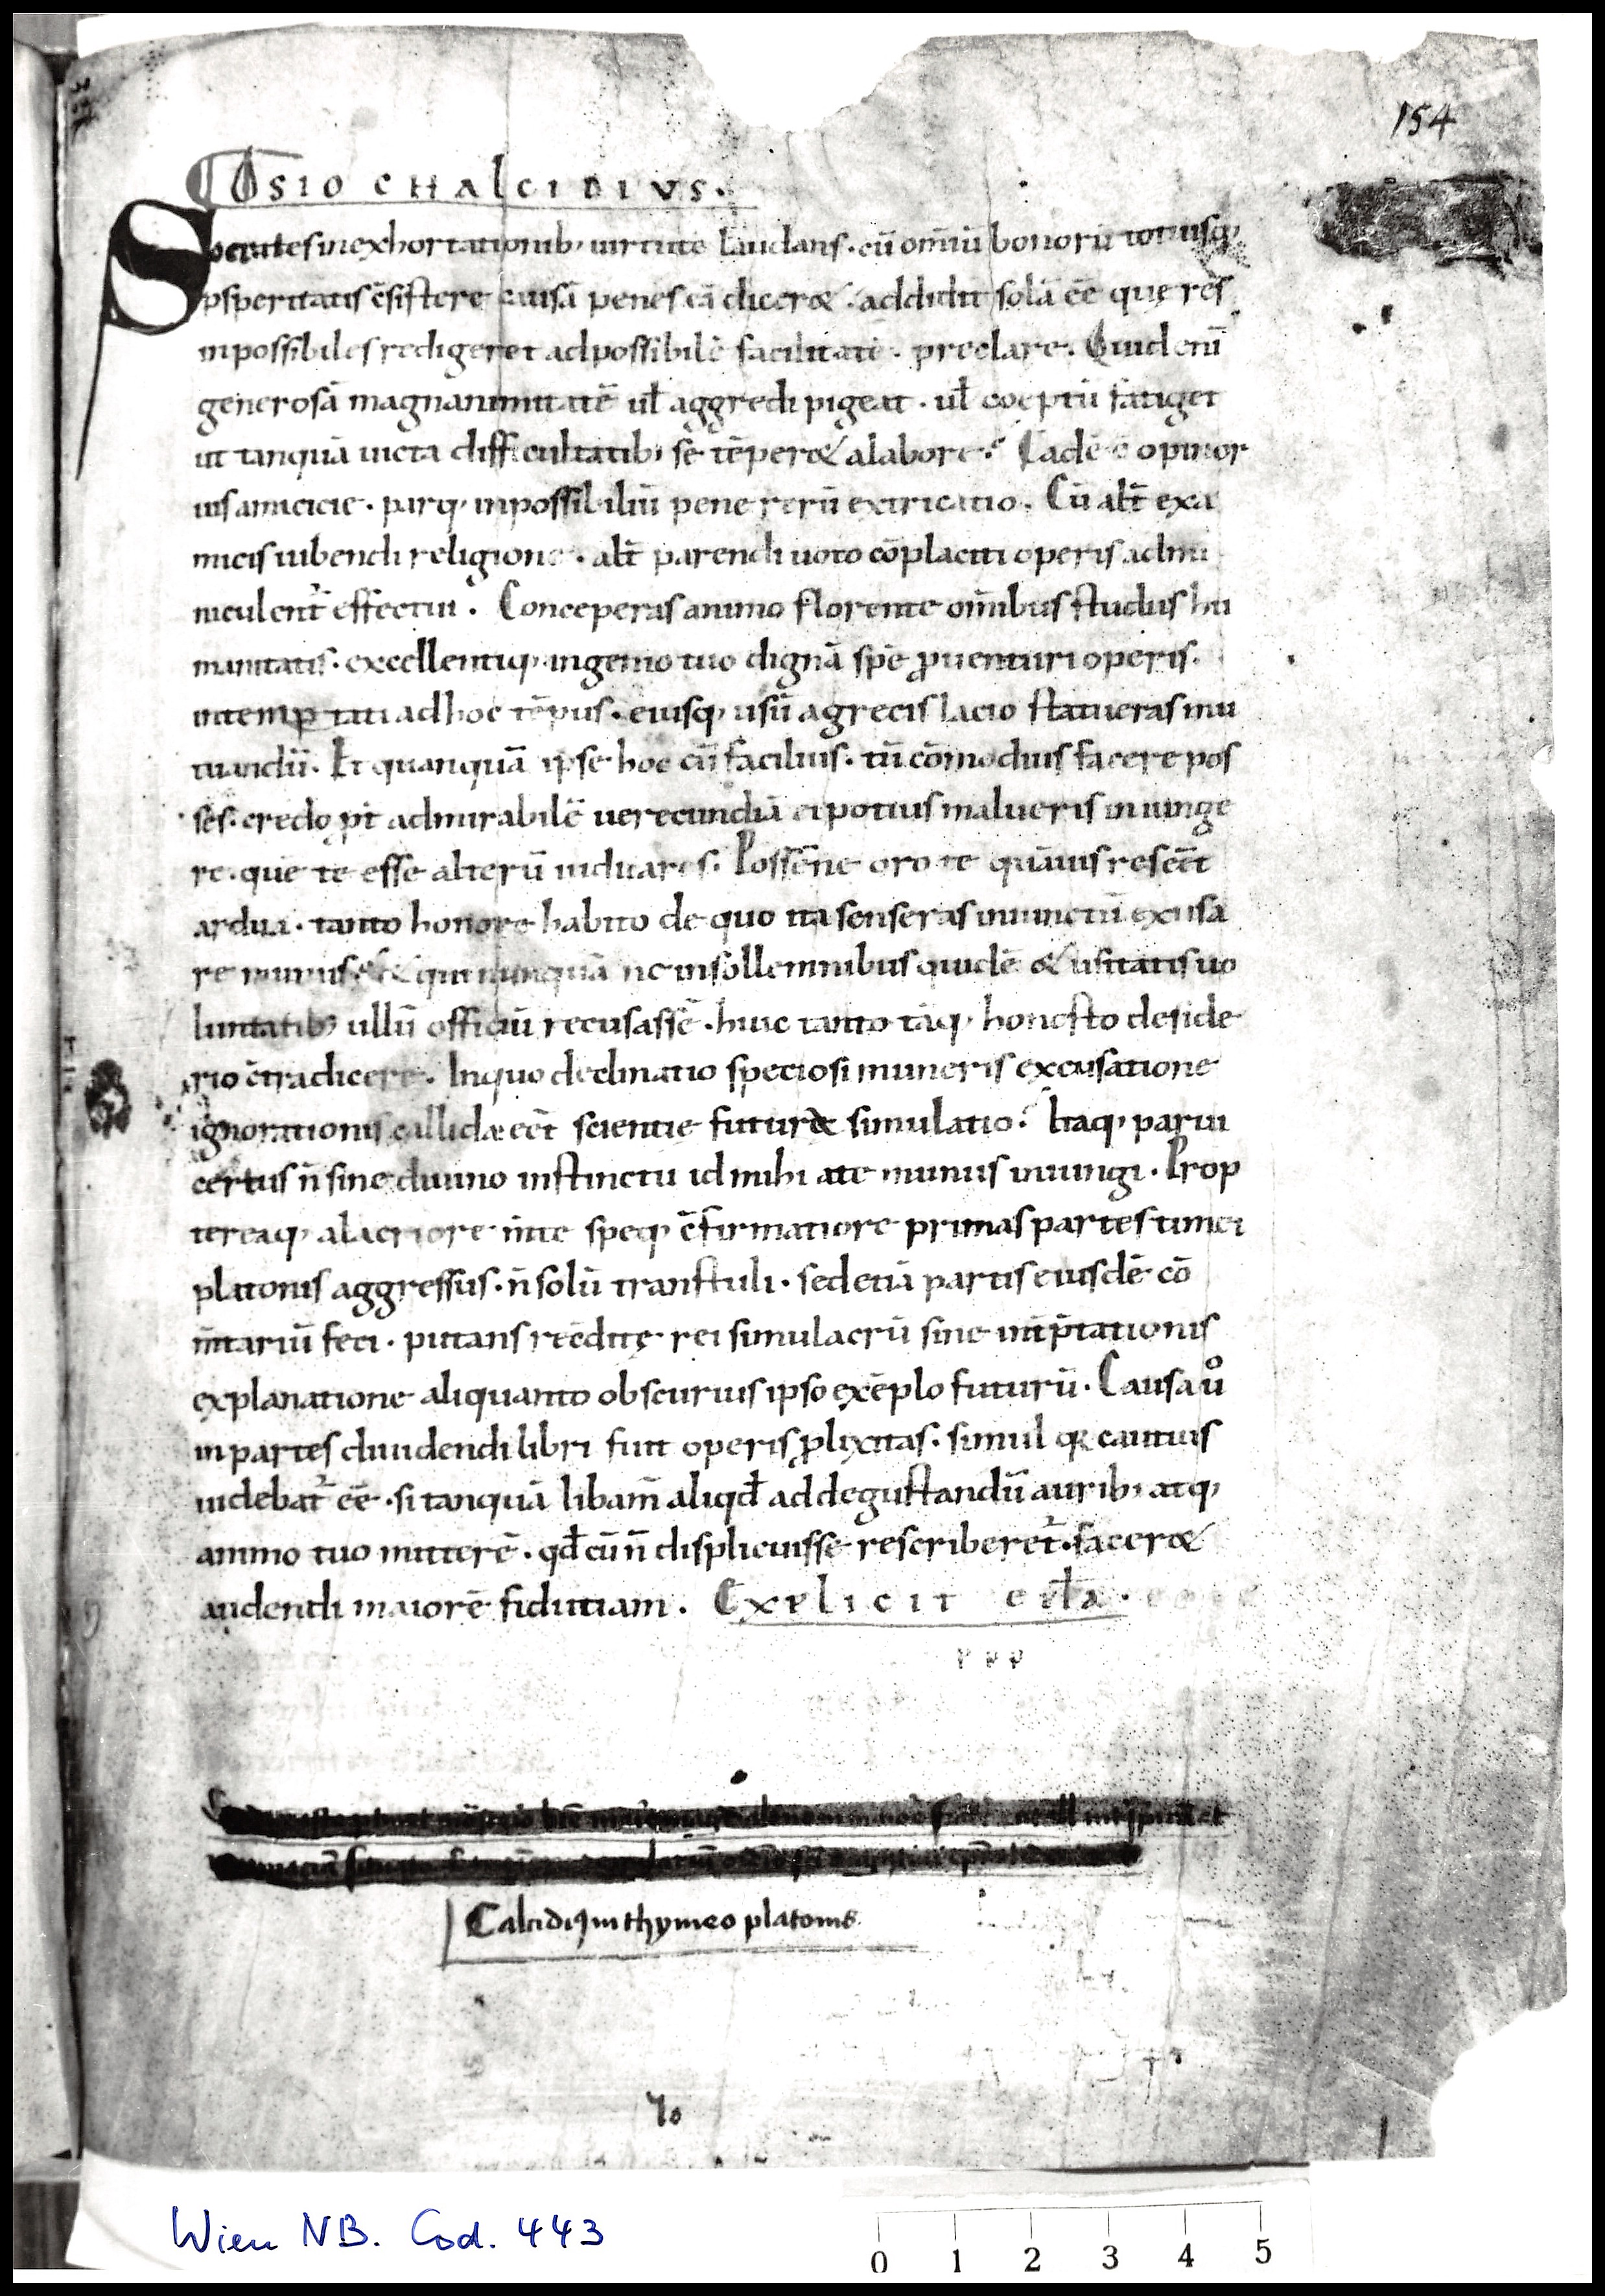 154
OSIO CHALCIDIVS.
Socrates inexhortationib; uirtutē laudans. cū omniū bonorū totiusq;
psperitatis c̄sistere causā penes eā dicer&. addidit solā eē que res
inpossibiles redigeret adpossibilē facilitatē. preclare. Quid eni
generosā magnanimitatē ul̄ aggredi pigeat. ul̄ coeptū fatiget
ut tanquā uicta difficultatib; se tēper& alabore? Eadē ē opinor
uis amicicie. parq; inpossibiliū pene rerū extricatio. Cū alt̄ exa
micis iubendi religione. alt̄ parendi uoto cōplaciti operis admi
niculent̄ effectui. Conceperas animo florente omībus studiis hu
manitatis. excellentiq; ingenio tuo dignā spē ꝓuenturi operis.
intemptati adhoc tēpus. eiusq; usū agrecis lacio statueras mu
tuandū. Et quanquā ipse hoc cū facilius. tū cōmodius facere pos
ses. credo pt̄ admirabilē uerecundiā ei potius malueris iniunge
re. quē te esse alterū iudicares. Possēne oro te quāuis res eēt
ardua. tanto honore habito de quo ita senseras iniunctū excusa
re munus? & qui nunquā nc insollemnibus quidē & usitatis uo
luntatib; ullū officiū recusassē. huic tanto tāq; honesto deside
rio c̄tradicere. Inquo declinatio speciosi muneris excusatione
ignorationis callidæ eēt scientie futuræ simulatio? Itaq; parui
certus n̄ sine diuino instinctu id mihi ate munus iniungi. Prop
tereaq; alacriore mīte speq; c̄firmatiore primas partes timei
platonis aggressus. n̄ solū transtuli. sed etiā partis eiusdē cō
mītariū feci. putans recōditę rei simulacrū sine intp̄tationis
explanatione aliquanto obscurius ipso exēplo futurū. Causa u̇
inpartes diuidendi libri fuit operis ꝓlixitas. simul qa cautius
uidebat̄ eē. si tanquā libam̄ aliqd̄ addegustandū aurib; atq;
animo tuo mitterē. qd̄ cū n̄ displicuisse rescriberet̄. facer&
audendi maiorē fidutiam. Explicit epl̄a.
p p p
Calcidiꝯ in thymeo platonis
Wien NB. Cod. 443
0 1 2 3 4 5